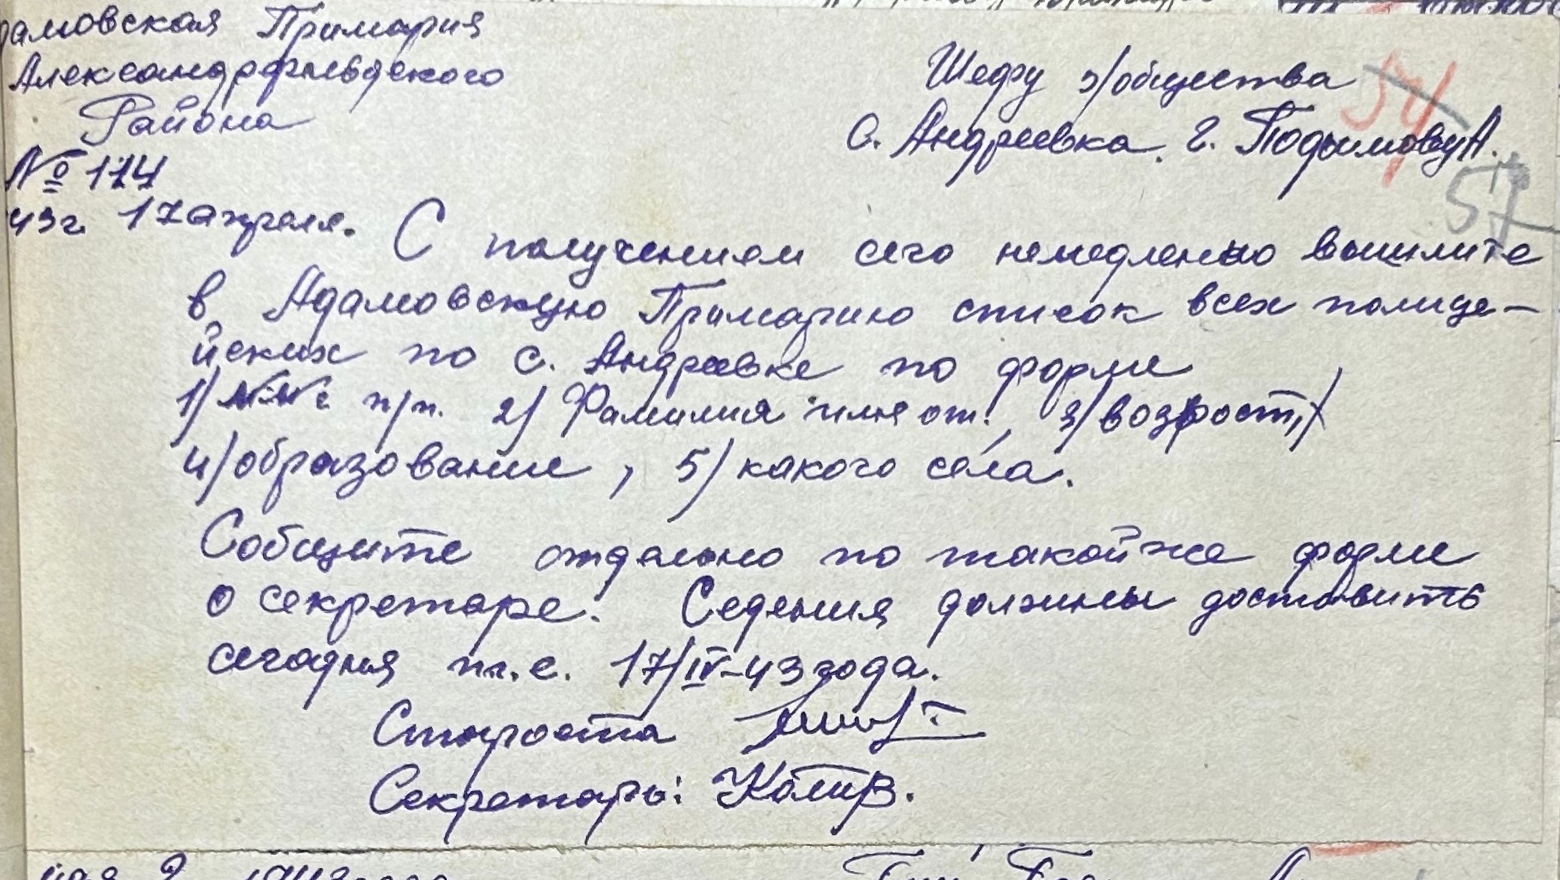 дамовская Примария
Александрфельдского
Района
№ 174
43г. 17 апреля.
Шефу э/общества
С. Андреевка. Г. Подымовву А.
54
57
С получением сего немедленно вышлите
в Адамовскую Примарию список всех полице-
йских по с. Андреевке по форме
1) №№ п/п. 2) Фамилия имя от., 3) возрост,
4) образование, 5) какого села.
Сообщите отдельно по такойже форме
о секретаре. Седения должины доставить
сегодня т.е. 17/IV-43 года.
Староста
Секретарь: